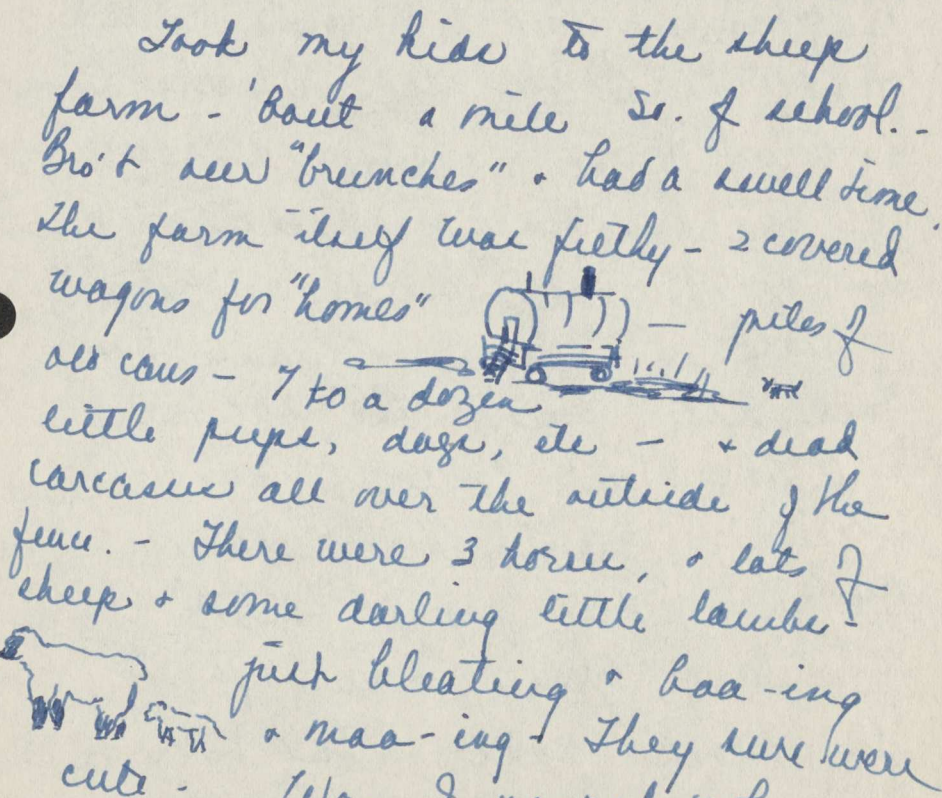 Took my kids to the sheep
farm - 'bout a mile So. of school. -
Bro't our "brunches" + had a swell time.
The farm itself was filthy - 2 covered
wagons for "homes" — piles of
old cans - 7 to a dozen
little pups, dogs, etc - + dead
carcasses all over the outside of the
fence. - There were 3 horses, + lots of
sheep + some darling little lambs -
just bleating + baa-ing
+ maa-ing - They sure were
cute.